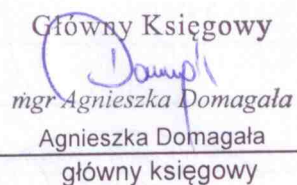 Główny Księgowy
mgr Agnieszka Domagała
Agnieszka Domagała
główny księgowy